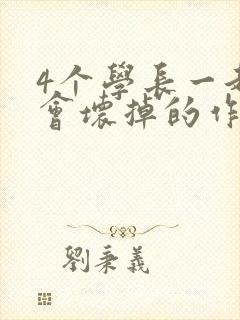 4个學長一
會壞掉的作
劉秉義